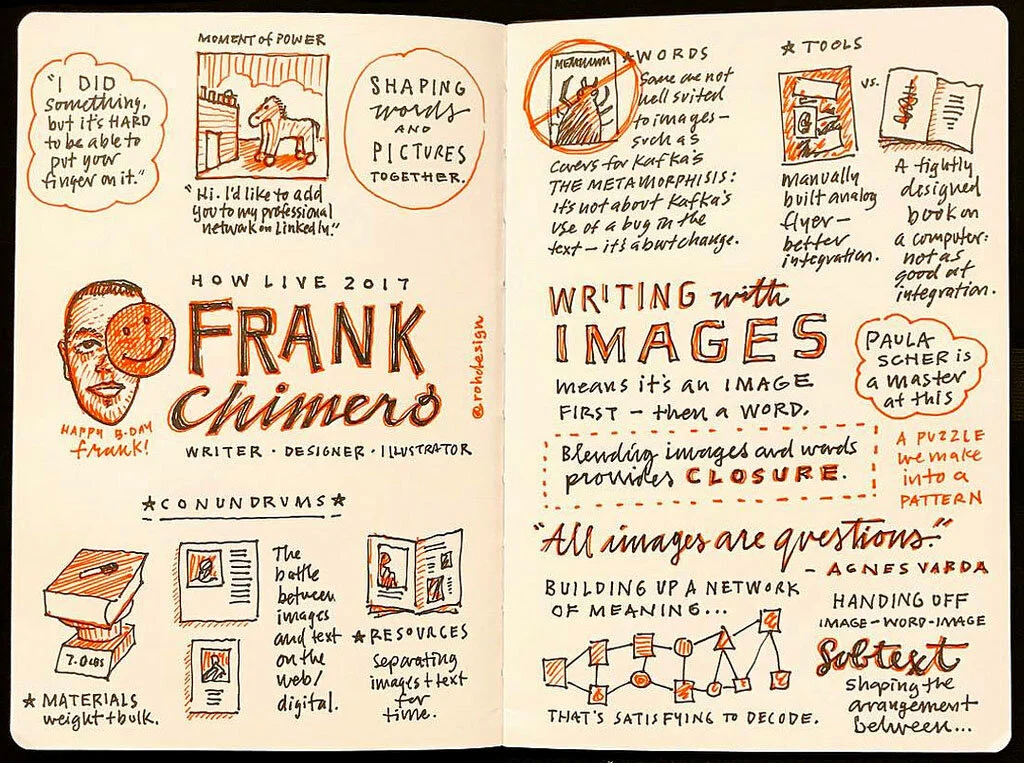 "I DID
something,
but it's HARD
to be able to
put your
finger on it."
MOMENT of POWER
"Hi. I'd like to add
you to my professional
network on LinkedIn."
SHAPING
words
AND
PICTURES
TOGETHER.
HOW LIVE 2017
FRANK
Chimero
WRITER · DESIGNER · ILLUSTRATOR
@rohdesign
HAPPY B-DAY
frank!
★CONUNDRUMS★
7.0 LBS
★ MATERIALS
weight + bulk.
The
battle
between
images
and text
on the
web/
digital.
★ RESOURCES
separating
images + text
for
time.
METAMM
★WORDS
Some are not
well suited
to images—
such as
covers for Kafka's
THE METAMORPHISIS:
it's not about Kafka's
use of a bug in the
text — it's about change.
★ TOOLS
vs.
Manually
built analog
flyer—
better
integration.
A tightly
designed
book on
a computer:
not as
good at
integration.
WRITING with
IMAGES
means it's an IMAGE
FIRST — then a WORD.
PAULA
SCHER is
a master
at this
Blending images and words
provides CLOSURE.
A PUZZLE
we make
into a
PATTERN
"All images are questions."
- AGNES VARDA
BUILDING UP A NETWORK
OF MEANING...
THAT'S SATISFYING TO DECODE.
HANDING OFF
IMAGE-WORD-IMAGE
Subtext
shaping the
arrangement
between...